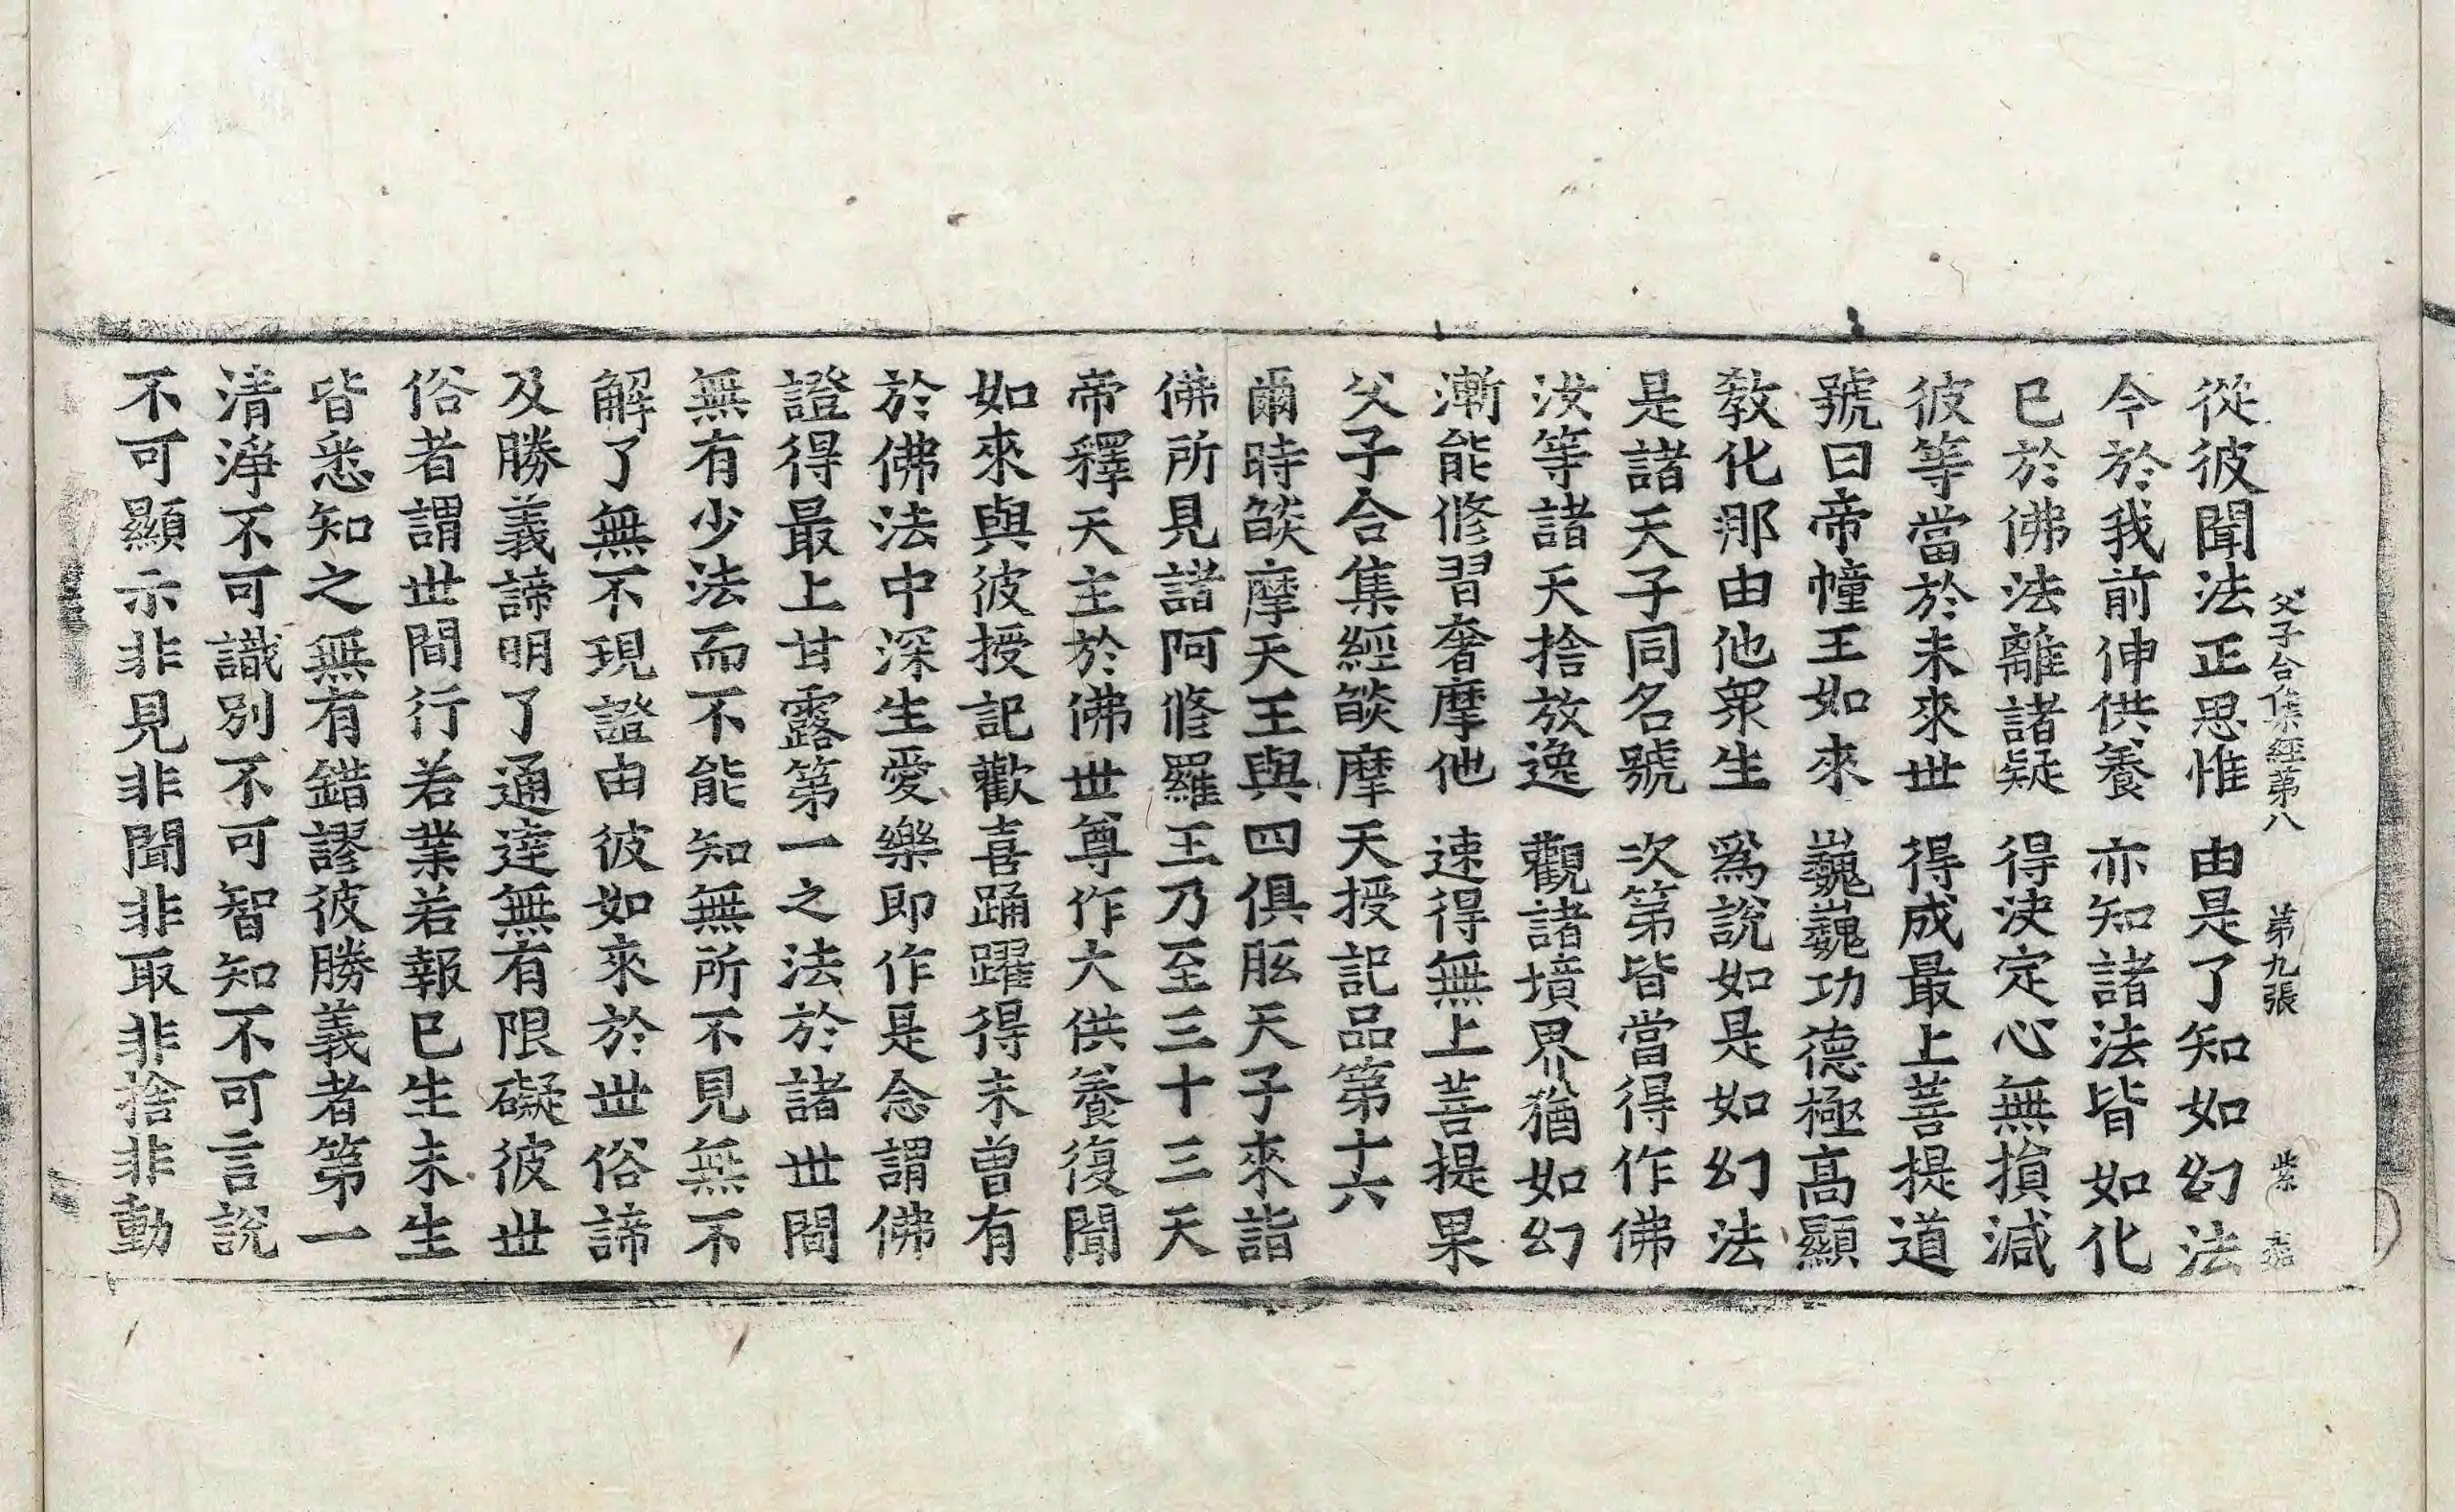 父子合集經第八 第九張 紫
從彼聞法正思惟 由是了知如幻法
今於我前伸供養 亦知諸法皆如化
已於佛法離諸疑 得決定心無損減
彼等當於未來世 得成最上菩提道
號曰帝幢王如來 巍巍功德極高顯
教化那由他衆生 爲說如是如幻法
是諸天子同名號 次第皆當得作佛
汝等諸天捨放逸 觀諸境界猶如幻
漸能修習奢摩他 速得無上菩提果
父子合集經燄摩天授記品第十六
爾時燄摩天王與四俱胝天子來詣
佛所見諸阿修羅王乃至三十三天
帝釋天主於佛世尊作大供養復聞
如來與彼授記歡喜踊躍得未曾有
於佛法中深生愛樂即作是念謂佛
證得最上甘露第一之法於諸世間
無有少法而不能知無所不見無不
解了無不現證由彼如來於世俗諦
及勝義諦明了通達無有限礙彼世
俗者謂世間行若業若報已生未生
皆悉知之無有錯謬彼勝義者第一
清淨不可識別不可智知不可言說
不可顯示非見非聞非取非捨非動